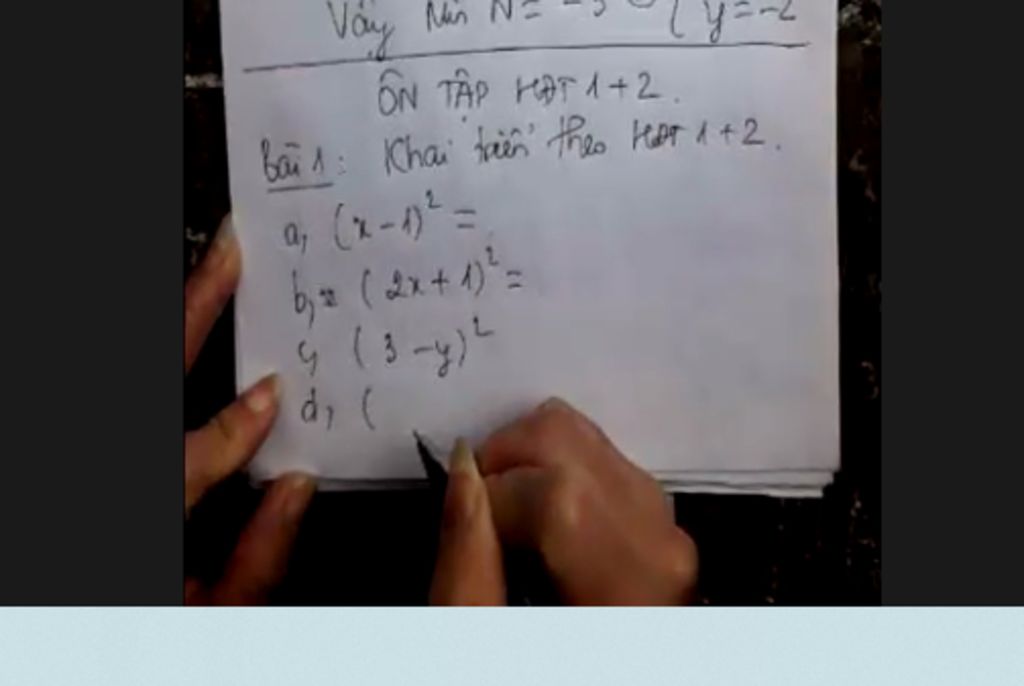 Vậy Min N = -5 ( y = -2
ÔN TẬP HĐT 1 + 2.
Bài 1: Khai triển theo HĐT 1 + 2.
a, (x - 1)² =
b, (2x + 1)² =
c, (3 - y)²
d, (